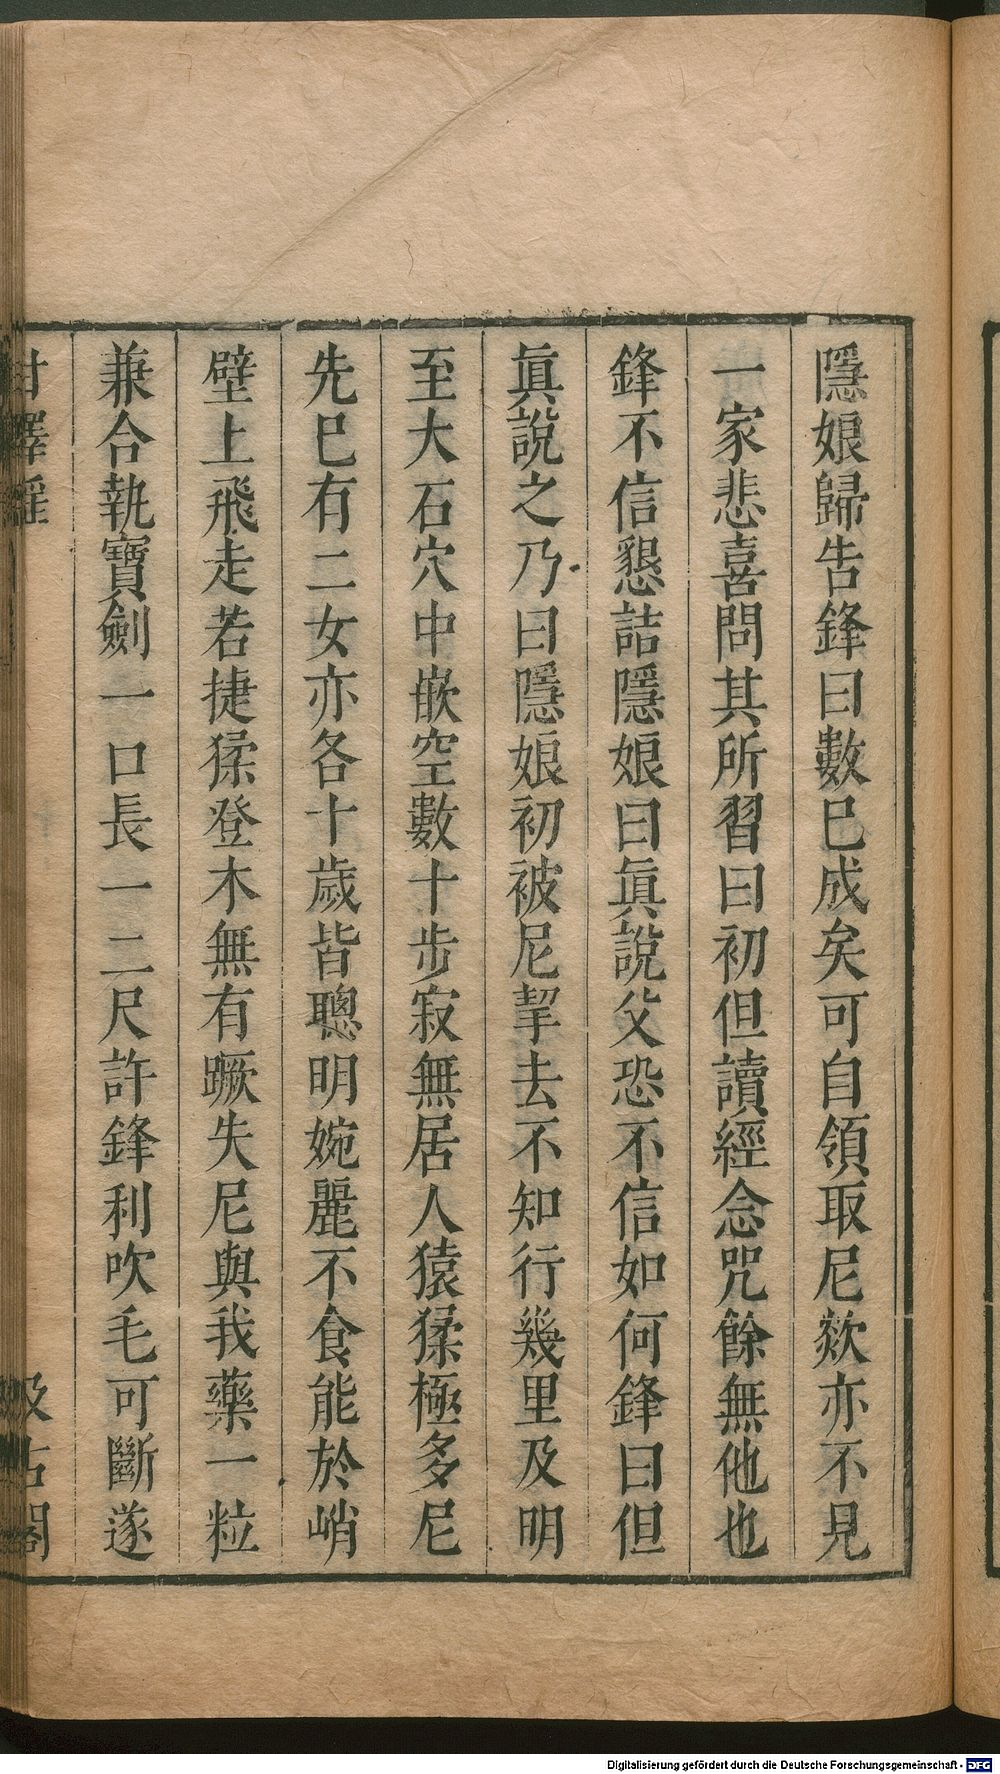 隱娘歸告鋒曰數已成矣可自領取尼欻亦不見
一家悲喜問其所習曰初但讀經念咒餘無他也
鋒不信懇詰隱娘曰眞說父恐不信如何鋒曰但
眞說之乃曰隱娘初被尼挈去不知行幾里及明
至大石穴中嵌空數十步寂無居人猿猱極多尼
先已有二女亦各十歲皆聰明婉麗不食能於峭
壁上飛走若捷猱登木無有蹶失尼與我藥一粒
兼令執寶劍一口長一二尺許鋒利吹毛可斷遂
甘澤謠
汲古閣
Digitalisierung gefördert durch die Deutsche Forschungsgemeinschaft - DFG